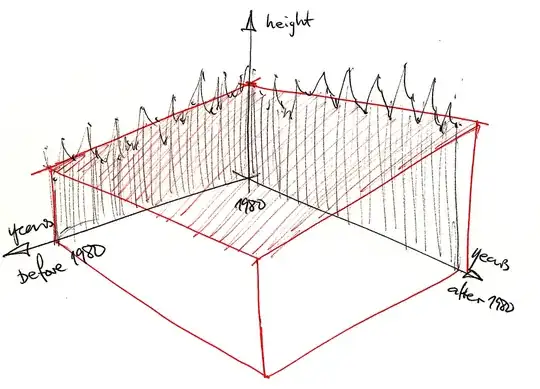 height
1980
years
before 1980
years
after 1980